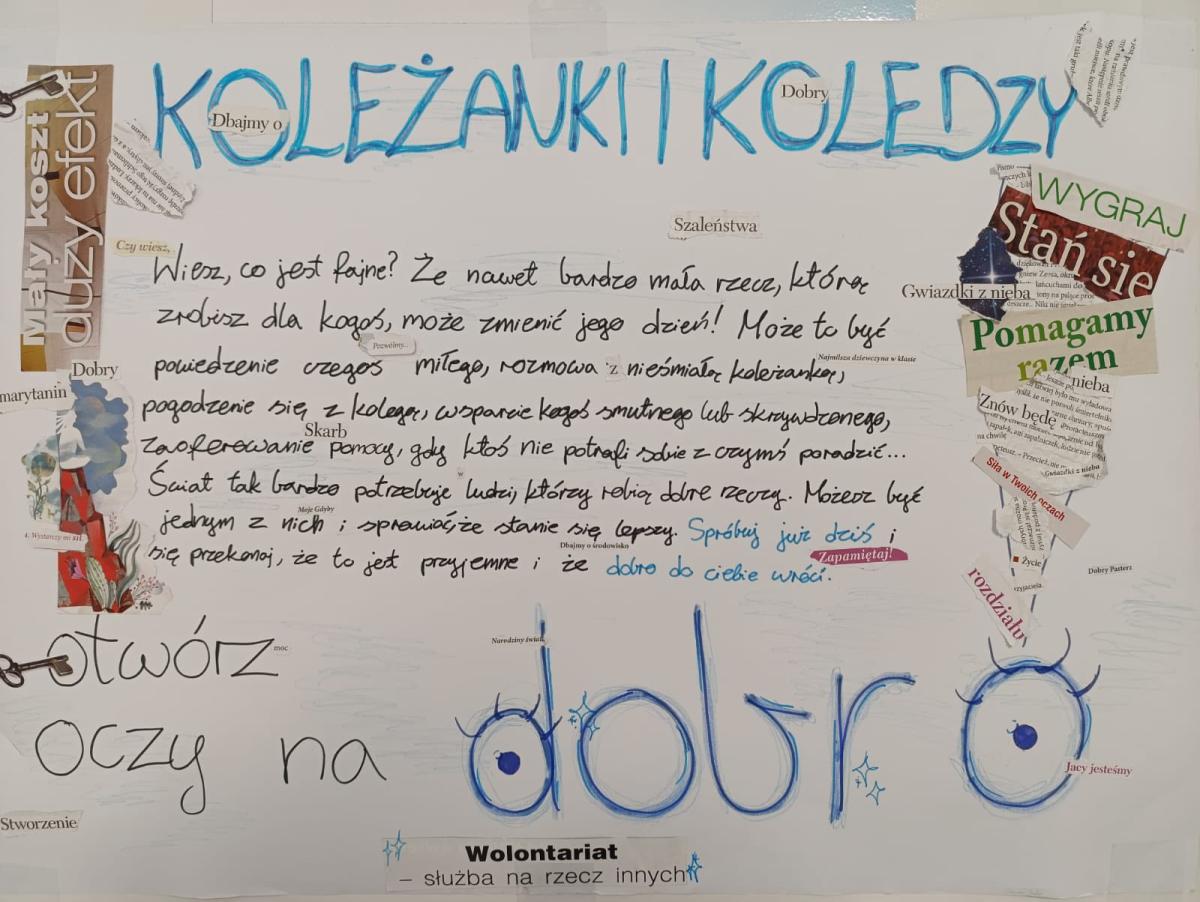 KOLEŻANKI I KOLEDZY
Dbajmy o
Dobry
Mały koszt
duży efekt
Szaleństwa
Czy wiesz,
Wiesz, co jest fajne? Że nawet bardzo mała rzecz, którą
zrobisz dla kogoś, może zmienić jego dzień! Może to być
Pozwólmy...
Najmilsza dziewczyna w klasie
powiedzenie czegoś miłego, rozmowa z nieśmiałą koleżanką,
pogodzenie się z kolegą, wsparcie kogoś smutnego lub skrzywdzonego,
Skarb
zaoferowanie pomocy, gdy ktoś nie potrafi sobie z czymś poradzić...
Świat tak bardzo potrzebuje ludzi, którzy robią dobre rzeczy. Możesz być
Moje Gdyby
jednym z nich i sprawiać, że stanie się lepszy. Spróbuj już dziś i
Dbajmy o środowisko
Zapamiętaj!
się przekonaj, że to jest przyjemne i że dobro do ciebie wróci.
Dobry
marytanin
WYGRAJ
Stań się
Gwiazdki z nieba
Pomagamy
razem
nieba
Znów będę
Gwiazdki z nieba
Siła w Twoich oczach
Życie
rozdziału
Dobry Pasterz
Narodziny świata
moc
otwórz
oczy na dobro
Jacy jesteśmy
Stworzenie
Wolontariat
– służba na rzecz innych